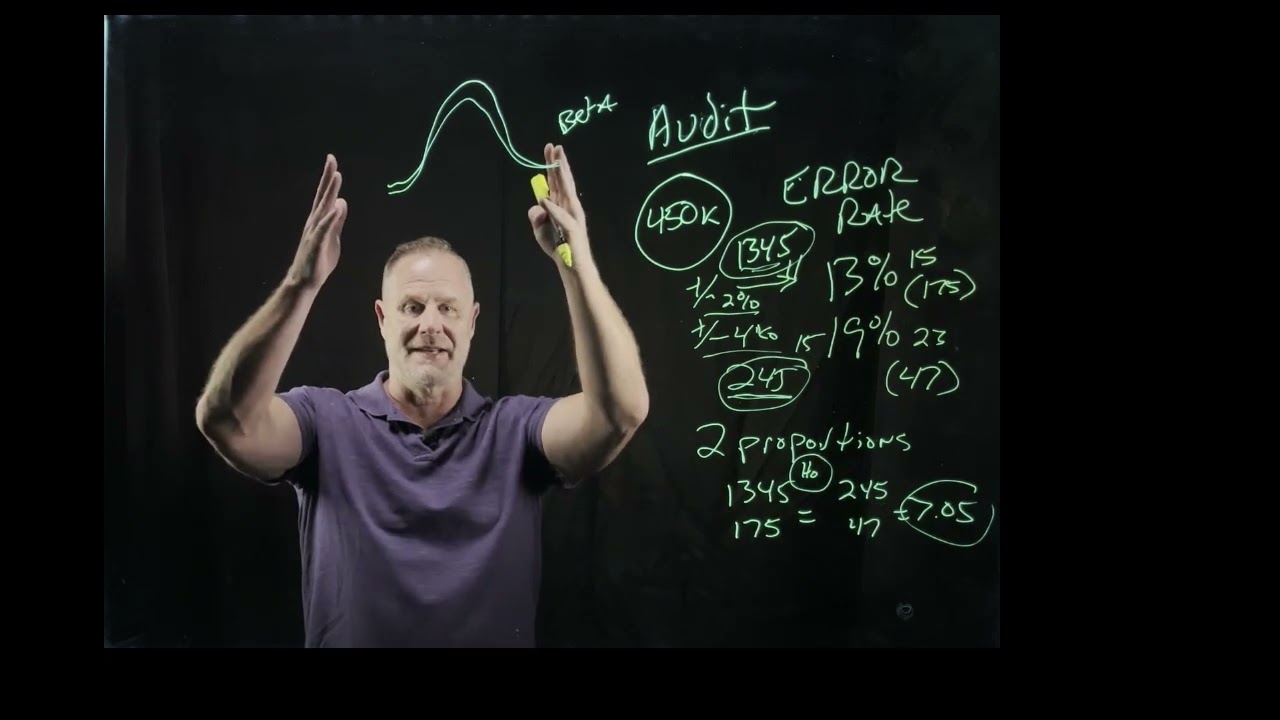 Beta
Audit
ERROR
Rate
450K
1345
+/- 2%
13% 15
(175)
+/- 4%
15 19% 23
(47)
245
2 proportions
Ho
1345 245
175 = 47
7.05